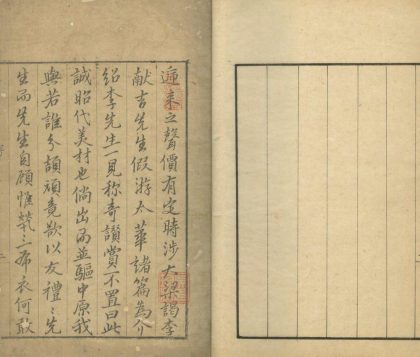 遍来之聲價有定時涉大梁謁李
献吉先生假游太華諸篇為介
紹李先生一見称奇讃賞不置曰此
誠昭代美材也倘出而並驅中原我
與若誰分頡頏竟欲以友禮〻先
生而先生自顧惟煢〻布衣何敢